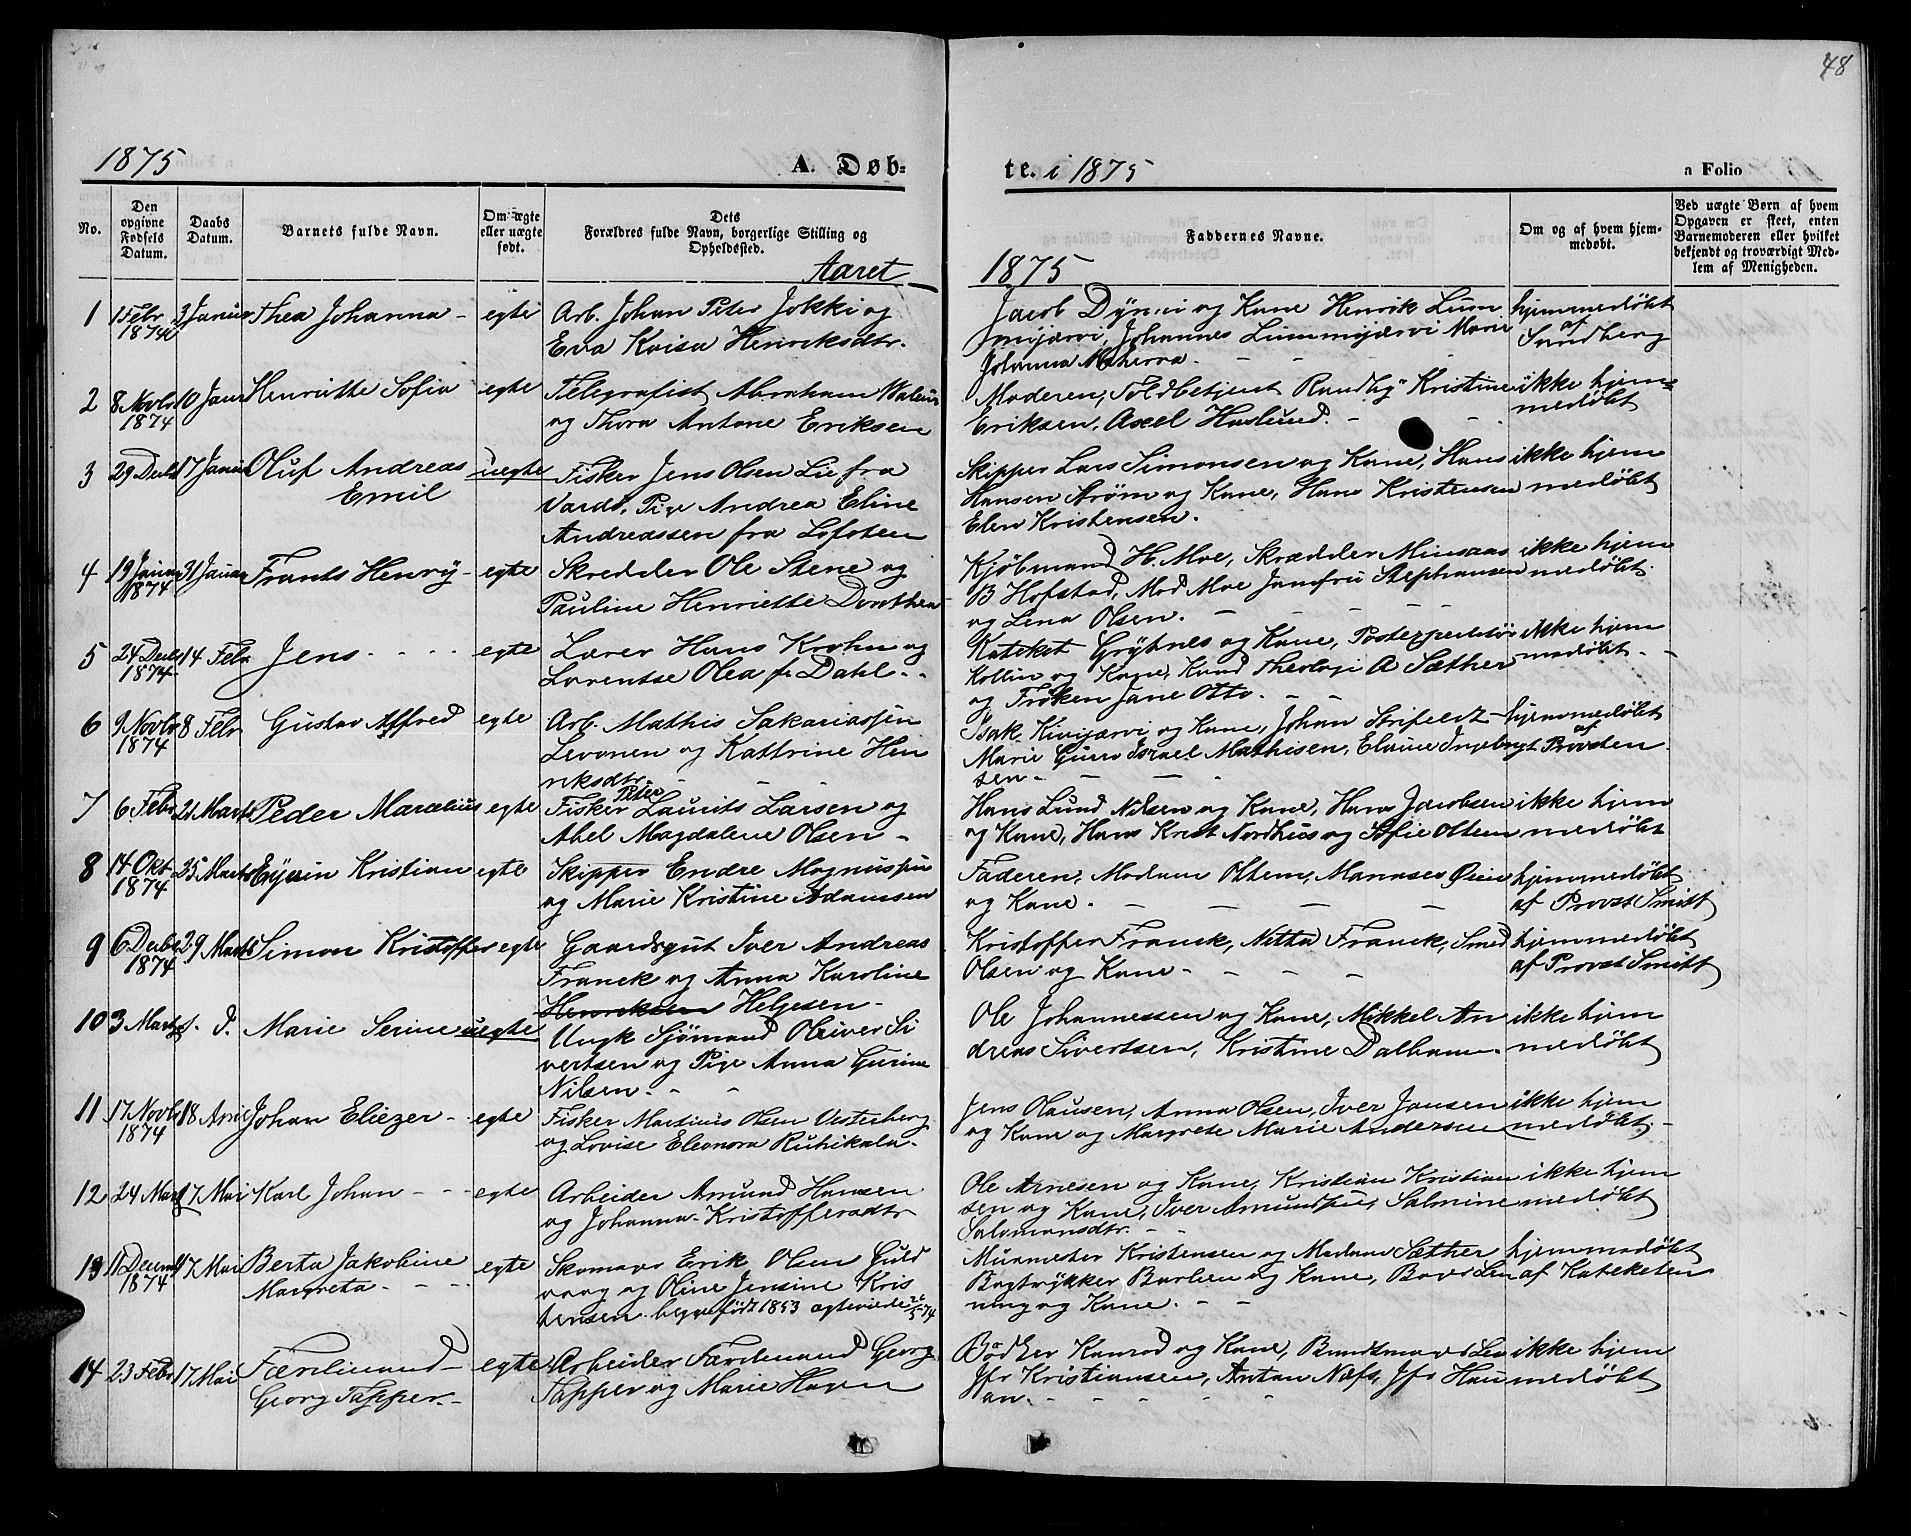 48
1875 A. Døb-
te. i 1875 a Folio
No.
Den opgivne Fødsels Datum.
Daabs Datum.
Barnets fulde Navn.
Om ægte eller uægte født.
Dets Forældres fulde Navn, borgerlige Stilling og Opholdssted.
Faddernes Navne.
Om og af hvem hjem-
medøbt.
Ved uægte Børn af hvem
Opgaven er skeet, enten
Barnemoderen eller hvilket
bekjendt og troværdigt Med-
lem af Menigheden.
Aaret 1875
1 1 Febr 1874 3 Januar Thea Johanna - egte Arb. Johan Peter Jokki og
Eva Kaisa Henriksdtr.
og Kone Henrik Lum
mijærvi, Johannes Lummijærvi Marie
Johanna
hjemmedøbt
af
Sandberg
2 8 Novbr 1874 10 Janr Henriette Sofia egte Telegrafist Abraham
og Thora Antone Eriksen
Moderen, Toldbetjent Randby Kristine
Eriksen, Axel Haslund. -
ikke hjem=
medøbt
3 29 Decbr 17 Januar Oluf Andreas
Emil
uegte
Fisker Jens Olsen Lie fra
Vardø, Pige Andrea Eline
Andreassen fra Lofoten
Skipper Lars Simonsen og Kone, Hans
Hansen Strøm og Kone, Hans Kristensen
Elen Kristensen.
ikke hjem
medøbt
4 19 Januar 1874 31 Januar Frants Henry - egte Skredder Ole Stene og
Pauline Henriette Dorthea
Kjøbmand H. Moe, Skrædder Minsaas
B Hofstad, Mad Moe Jomfru Stephansen
og Lena Olsen. -
ikke hjem
medøbt.
5 24 Decbr 1874 14 Febr Jens - - - egte Lærer Hans Krohn og
Lorentse Olea f. Dahl.
Kateket Grytnes og Kone, Postexpeditør
Kollin og Kone, Kand Theologi A Sæther
og Frøken Jane Otto. - -
ikke hjem
medøbt. -
6 9 Novbr 1874 8 Febr Gustav Alfred egte Arb. Mathis Sakariassen
Levonen og Kathrine Hen
riksdtr -
Isak Kivijærvi og Kone, Johan
Marie Guro Israel Mathisen, Elvine Ingebrigt
sen - - -
hjemmedøbt
af
Provsten
7 6 Febr 21 Marts Peder Marcelius egte Fisker Peter Laurits Larsen og
Abel Magdalene Olsen -
Hans Lund Nilsen og Kone, Hans Jacobsen
og Kone, Hans Krist Nordhus og Sofie Oltem
ikke hjem
medøbt
8 14 Okt 1874 25 Marts Kristian egte Skipper Endre Magnussen
og Marie Kristine Adamsen
Faderen, Madam Oltem, Manases Øien
og Kone. - - - -
hjemmedøbt
af Provst Smitt
9 6 Decbr 1874 29 Marts Simon Kristoffer egte Gaardsgut Iver Andreas
Franck og Anna Karoline
Henriksen Helgesen -
Kristoffer Franck, Netta Franck, Smed
Olsen og Kone - - - -
hjemmedøbt
af Provst Smitt
10 3 Marts s. D. Marie Serine uegte Ungk Sjømand Oliver Si
vertsen og Pige Anna Gurine
Nilsen. - -
Ole Johannessen og Kone, Mikkel An
dreas Sivertsen, Kristine Dalhaun.
ikke hjem
medøbt
11 17 Novbr 1874 18 April Johan Eliezer - egte Fisker Martinus Olsen Vesterberg
og Lovise Eleonora Ruhikala -
Jens Olausen, Anna Olsen, Iver Jansen
og Kone og Margrete Marie Andersen
ikke hjem
medøbt. -
12 24 Marts 17 Mai Karl Johan - - egte Arbeider Amund Hansen
og Johanna Kristoffersdtr
Ole Arnesen og Kone, Kristian Kristian
sen og Kone, Iver Amundsen, Salmine
Salomonsdtr. -
ikke hjem
medøbt
13 11 Decemb 1874 17 Mai Berta Jakobine
Margreta - -
egte Skomager Erik Olsen Guld
vaag og Oline Jensine Kris
tensen begge født 1853 egteviede 26/5 74
Murmester Kristensen og Madam Sæther
Bogtrykker Barlien og Kone,
ning og Kone. - -
hjemmedøbt
af Kateketen
14 23 Febr 17 Mai Færdinand -
Georg Tapper -
egte Arbeider Færdinand Georg
Tapper og Marie Havn
Bødker Konrad og Kone,
Jfr Kristiansen, Anton Næss, Jfr Hau
an. - - - -
ikke hjem
medøbt